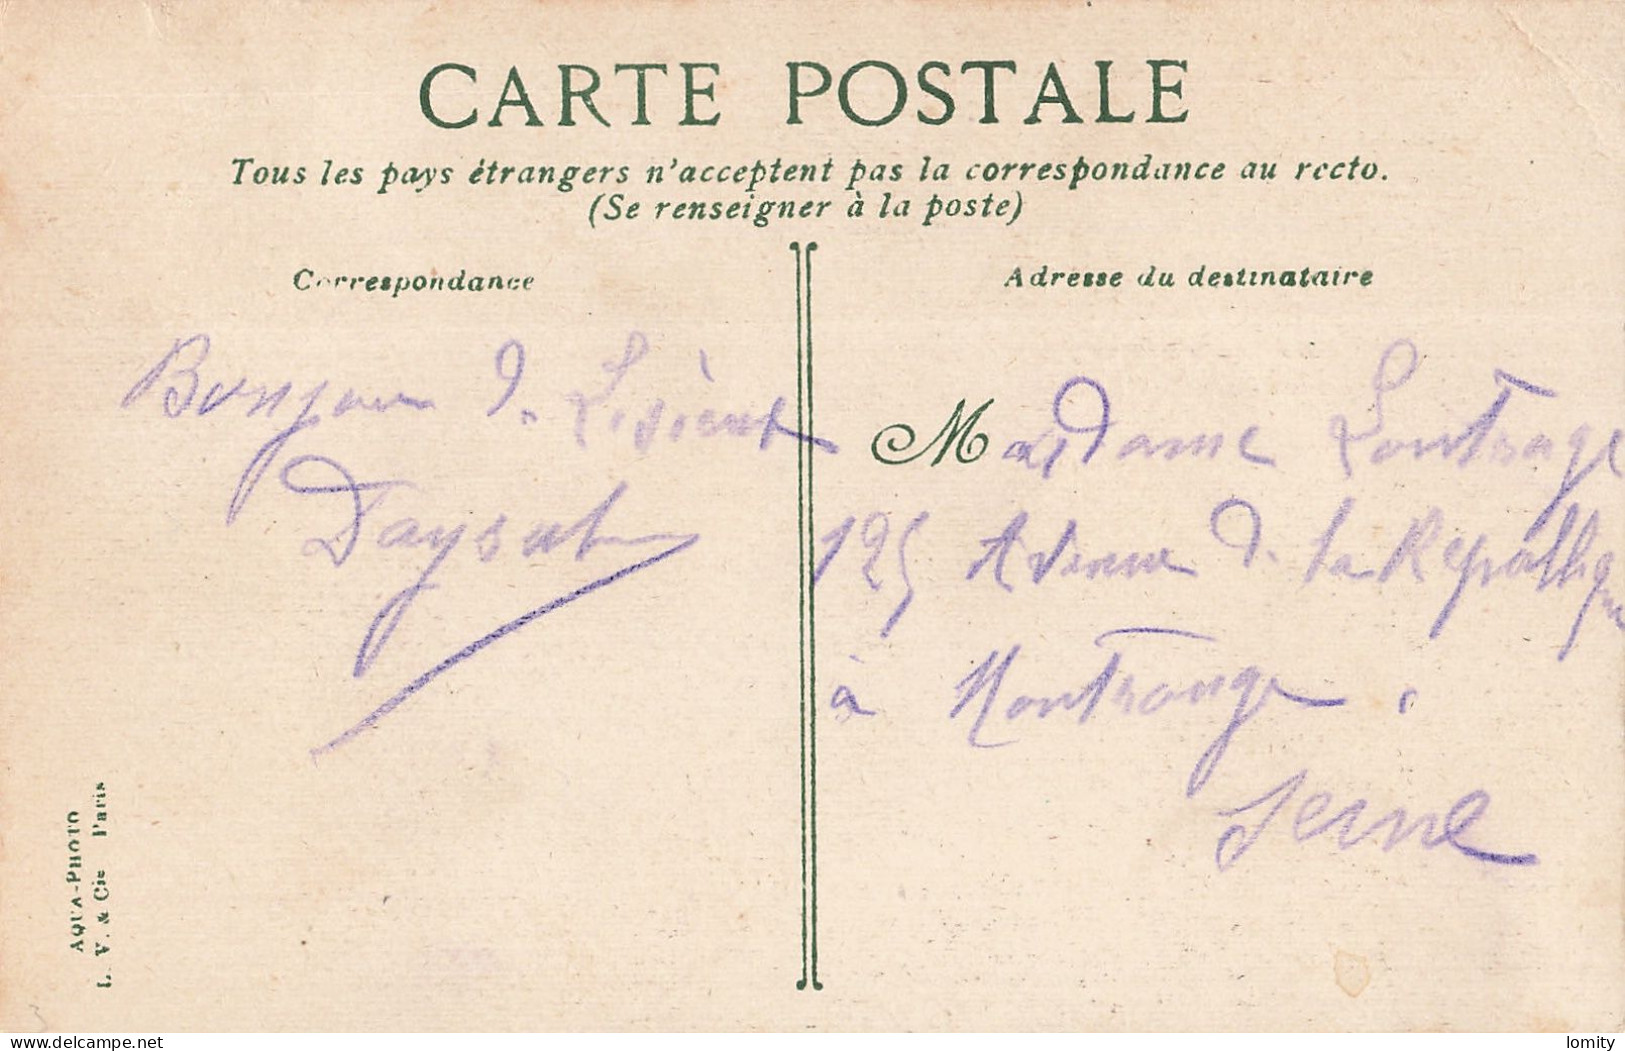 CARTE POSTALE
Tous les pays étrangers n'acceptent pas la correspondance au recto.
(Se renseigner à la poste)
Correspondance
Adresse du destinataire
Bonjour de
Madame
125 Avenue de la République
à Montrouge.
Seine
AQUA-PHOTO
L. V. & Cie Paris
delcampe.net
lomity